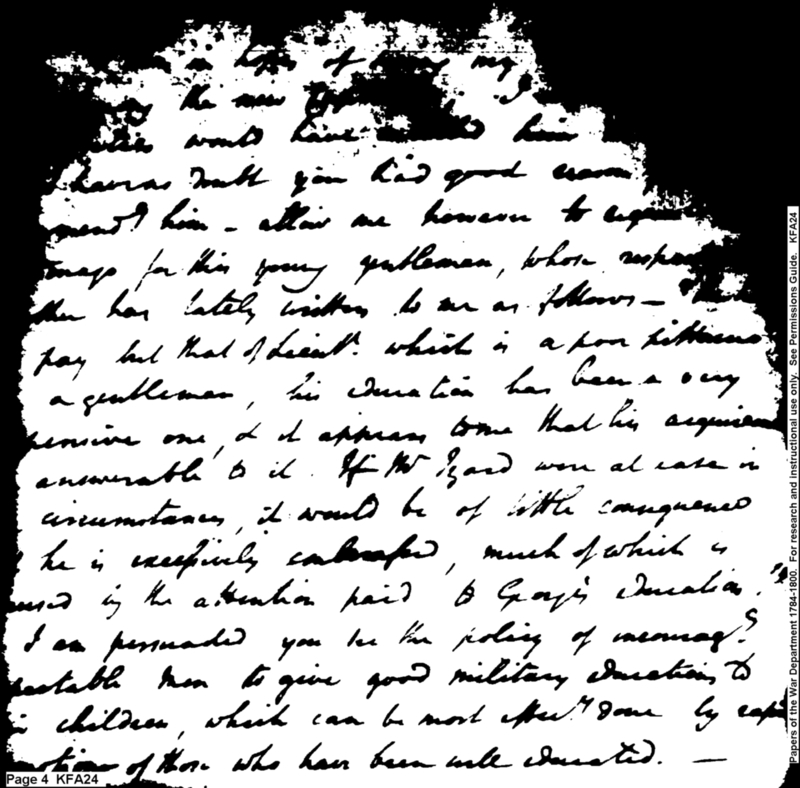 in hopes of my
the new
would have him
have no doubt you had good reason
him – allow me however to
for this young gentleman, whose
has lately written to me as follows – "
pay but that of Lieut. which is a poor pittance
a gentleman, his education has been a very
pensive one, & it appears to me that his
answerable to it. If Mr Izard were at ease in
circumstances, it would be of little consequence
he is excessively embarrassed, much of which is
by the attention paid to George's education."
I am persuaded you see the policy of encourag.g
pectable men to give good military educations to
children, which can be most effec.ly done by
motions of those who have been well educated. —
Page 4 KFA24
Papers of the War Department 1784-1800. For research and instructional use only. See Permissions Guide. KFA24